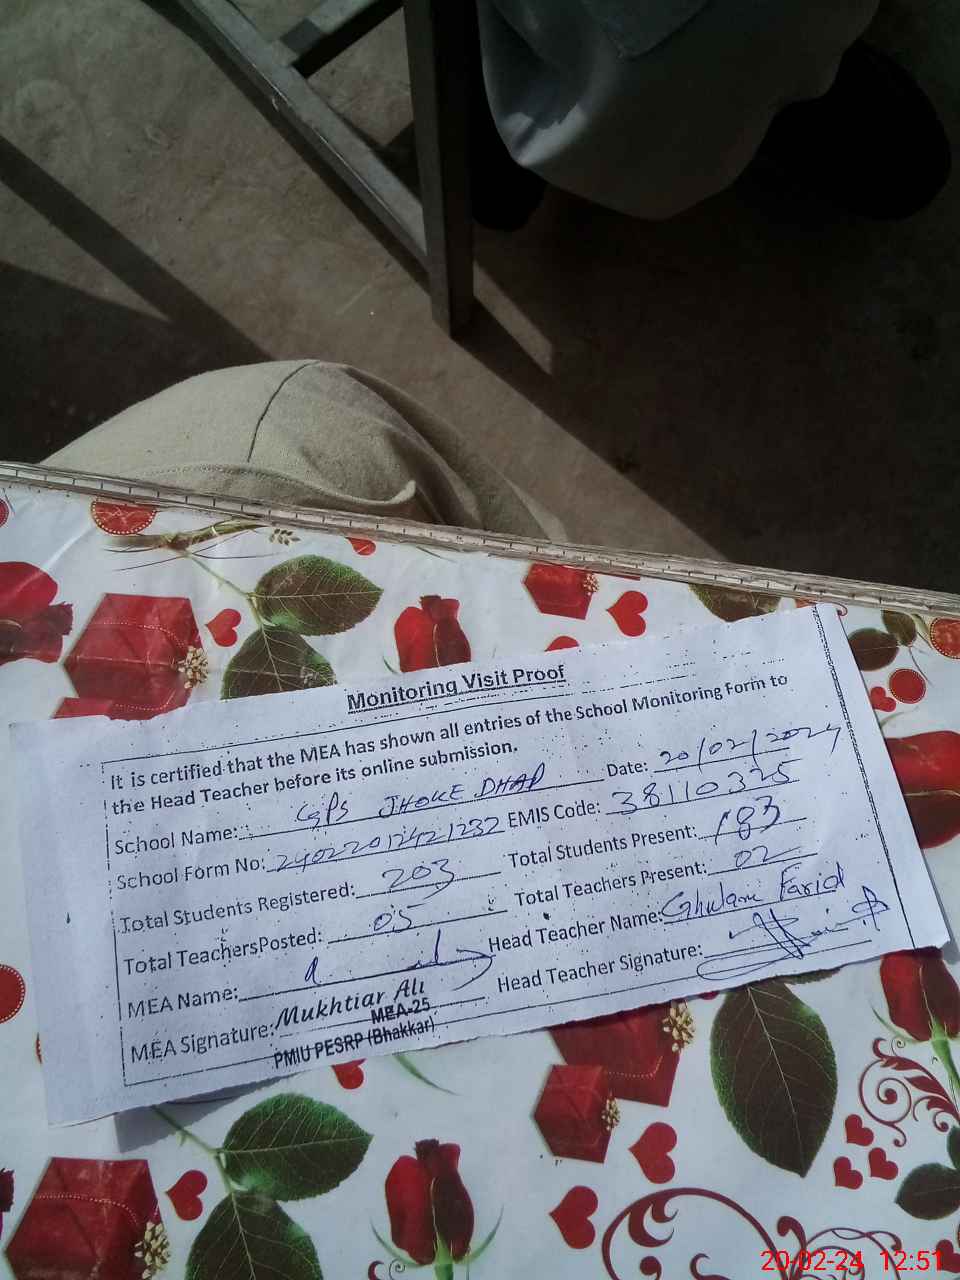 Monitoring Visit Proof
It is certified that the MEA has shown all entries of the School Monitoring Form to
the Head Teacher before its online submission.
School Name: GPS JHOKE DHAP Date: 20/02/2024
School Form No: 2402201421232 EMIS Code: 38110325
Total Students Registered: 203 Total Students Present: 183
Total TeachersPosted: 05 Total Teachers Present: 02
MEA Name: Head Teacher Name: Ghulam Farid
MEA Signature: Mukhtiar Ali Head Teacher Signature:
MEA-25
PMIU PESRP (Bhakkar)
20-02-24 12:51